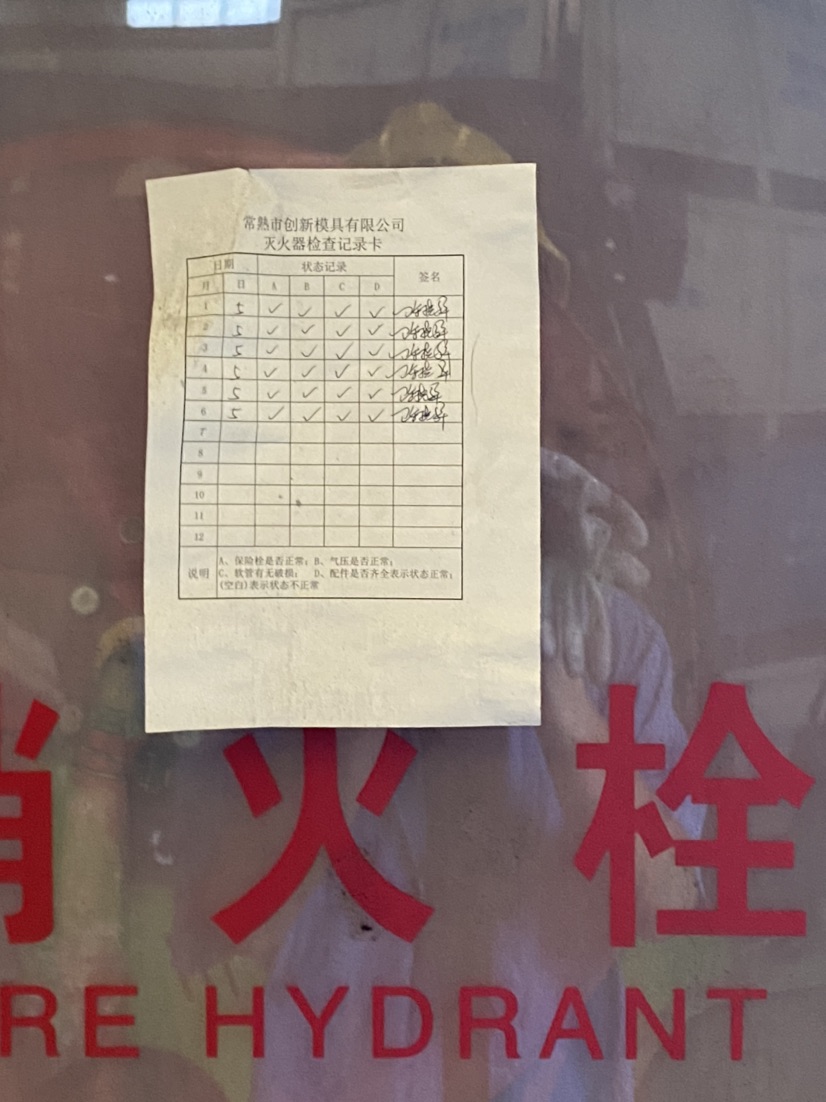 常熟市创新模具有限公司
灭火器检查记录卡
日期 状态记录 签名
月 日 A B C D
1 5 ✓ ✓ ✓ ✓
2 5 ✓ ✓ ✓ ✓
3 5 ✓ ✓ ✓ ✓
4 5 ✓ ✓ ✓ ✓
5 5 ✓ ✓ ✓ ✓
6 5 ✓ ✓ ✓ ✓
7
8
9
10
11
12
说明 A、保险栓是否正常；B、气压是否正常；
C、软管有无破损； D、配件是否齐全表示状态正常；
(空白)表示状态不正常
消火栓
RE HYDRANT